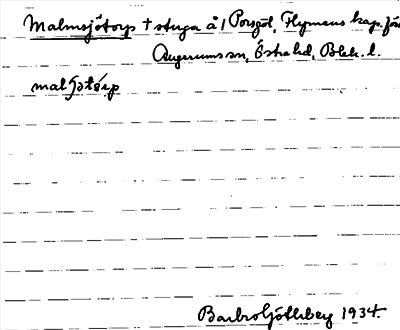 Malmsjötorp † stuga å 1 Porsgöl, Flymens kap. förs.
Augerums sn, Östra hd, Blek. l.
malʃøtórp
Barbro Götlberg 1934.